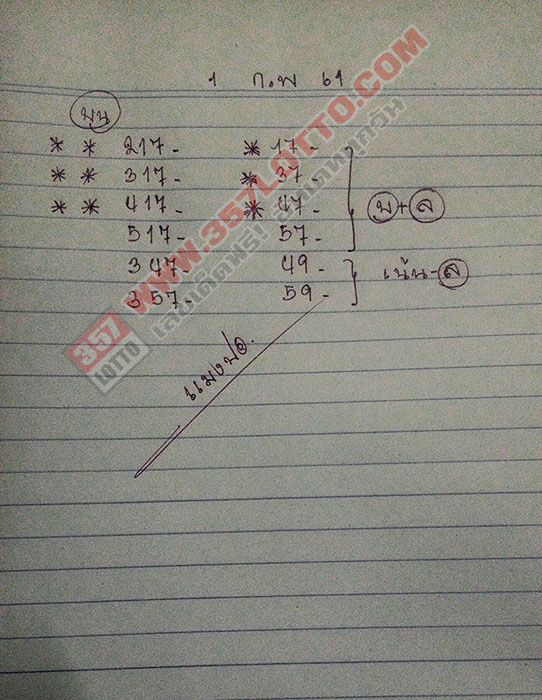 1 ก.พ 61
บน
* * 217- * 17-
* * 317- * 37-
* * 417- * 47- บ+ล
517- 57-
347- 49- เน้น-ล
357- 59-
แมงปอ.
WWW.357LOTTO.COM
เลขเด็ดฟรี! อัพเดททุกวัน
357
LOTTO